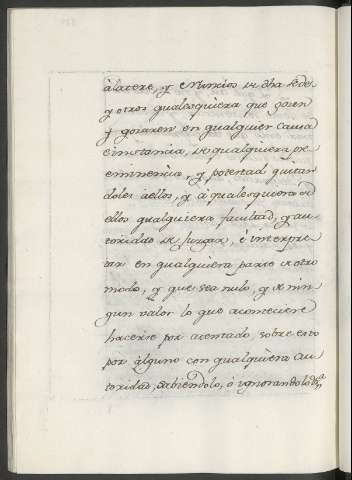 àlatere, y enuncios de dha sede,
y otros qualesquiera que gozen
y gozaren en qualquier causa
e instancia, de qualquiera pre
eminencia, y potestad quitan
doles àellos, y à qualesquiera de
ellos qualquiera facultad, y au
toridad de juzgar, è interpre
tar en qualquiera parte ò otro
modo, y que sea nulo, y de nin
gun valor lo que aconteciere
hacerse por atentado, sobre esto
por àlguno con qualquiera au
toridad, sabiendolo, ò ygnorandolo